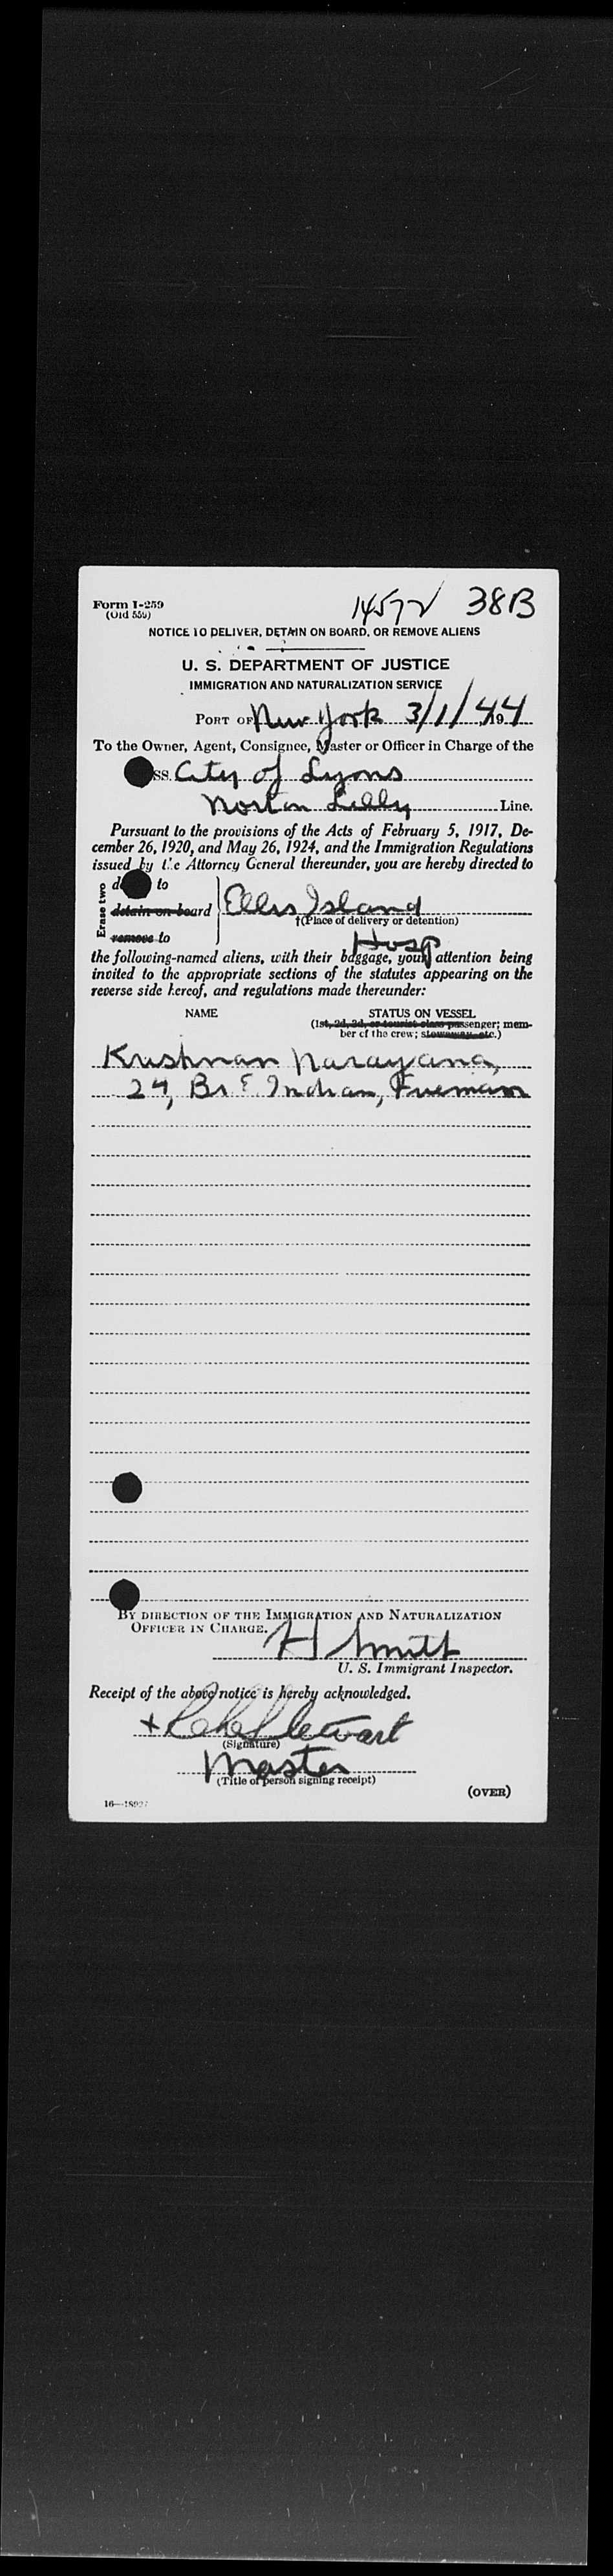 Form I-259
(Old 559)
14572 38B
NOTICE TO DELIVER, DETAIN ON BOARD, OR REMOVE ALIENS
U. S. DEPARTMENT OF JUSTICE
IMMIGRATION AND NATURALIZATION SERVICE
PORT OF New York 3/1/44, 19
To the Owner, Agent, Consignee, Master or Officer in Charge of the
SS. City of Lyons
Norton Lilly Line.
Pursuant to the provisions of the Acts of February 5, 1917, De-
cember 26, 1920, and May 26, 1924, and the Immigration Regulations
issued by the Attorney General thereunder, you are hereby directed to
Erase two
to
detain on board
remove to
Ellis Island
†(Place of delivery or detention)
Hosp
the following-named aliens, with their baggage, your attention being
invited to the appropriate sections of the statutes appearing on the
reverse side hereof, and regulations made thereunder:
NAME
STATUS ON VESSEL
(1st, 2d, 3d, or tourist class passenger; mem-
ber of the crew; stowaway, etc.)
Krishnan Narayana,
24, Br E. Indian, Fireman
BY DIRECTION OF THE IMMIGRATION AND NATURALIZATION
OFFICER IN CHARGE.
H Smith
U. S. Immigrant Inspector.
Receipt of the above notice is hereby acknowledged.
Stewart
(Signature)
Master
(Title of person signing receipt)
(OVER)